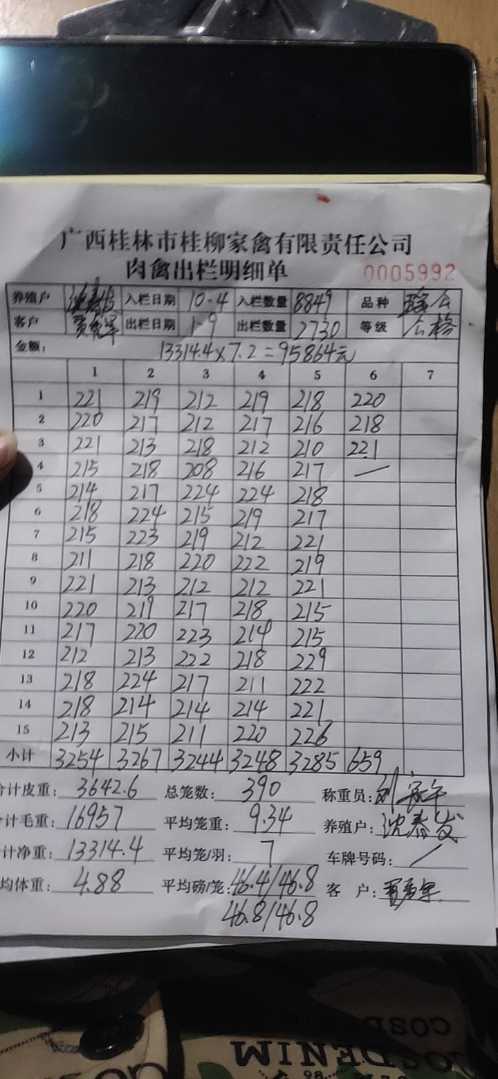 广西桂林市桂柳家禽有限责任公司
肉禽出栏明细单 0005992
养殖户 沈泰发 入栏日期 10-4 入栏数量 8849 品种
客户 出栏日期 1-9 出栏数量 2730 等级 合格
金额: 13314.4×7.2=95864元
1 2 3 4 5 6 7
1 221 219 212 219 218 220
2 220 217 212 217 216 218
3 221 213 218 212 210 221
4 215 218 208 216 217 —
5 214 217 224 224 218
6 218 224 215 219 217
7 215 223 219 212 221
8 211 218 220 222 219
9 221 213 212 212 221
10 220 219 217 218 215
11 217 220 223 214 215
12 212 213 222 218 229
13 218 224 217 211 222
14 218 214 214 214 221
15 213 215 211 220 226
小计 3254 3267 3244 3248 3285 659
计皮重: 3642.6 总笼数: 390 称重员:
计毛重: 16957 平均笼重: 9.34 养殖户: 沈泰发
计净重: 13314.4 平均笼/羽: 7 车牌号码: /
均体重: 4.88 平均磅/笼: 46.4/46.8 客 户:
46.8/46.8
COSD
WINI
OSDENIM